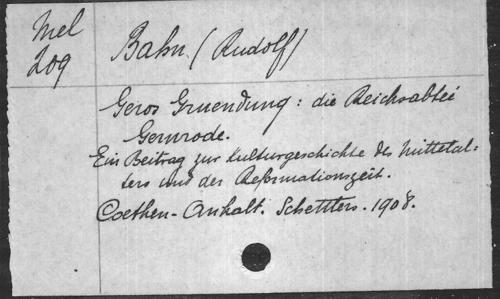 Mel
209
Bahn (Rudolf)
Geros Gruendung: die Reichsabtei
Gernrode.
Ein Beitrag zur Kulturgeschichte des Mittelal-
ters und der Reformationszeit.
Coethen-Anhalt. Schettlers. 1908.